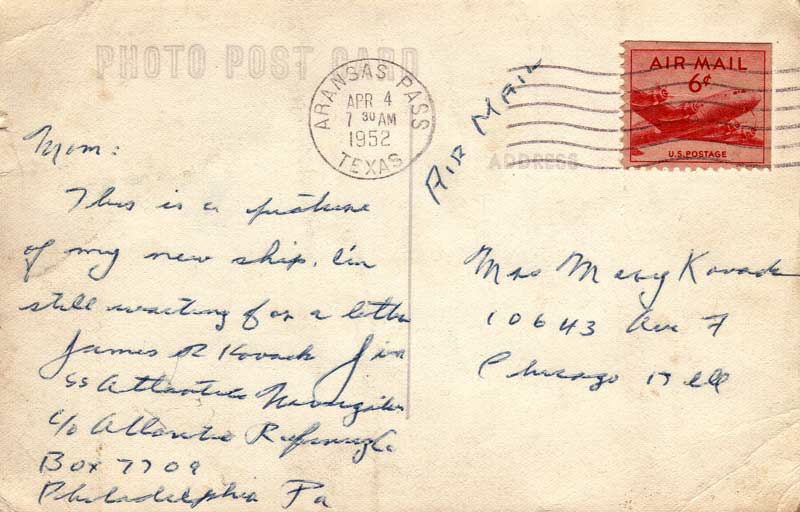 PHOTO POST CARD
ARANSAS PASS
APR 4
7 30 AM
1952
TEXAS
AIR MAIL
AIR MAIL
6¢
U.S. POSTAGE
ADDRESS
Mom:
This is a picture
of my new ship. I'm
still waiting for a letter
James R Kovach Jim
SS Atlantic Navigator
c/o Atlantic Refining Co
Box 7709
Philadelphia Pa
Mrs Mary Kovach
10643 Ave F
Chicago 17 Ill